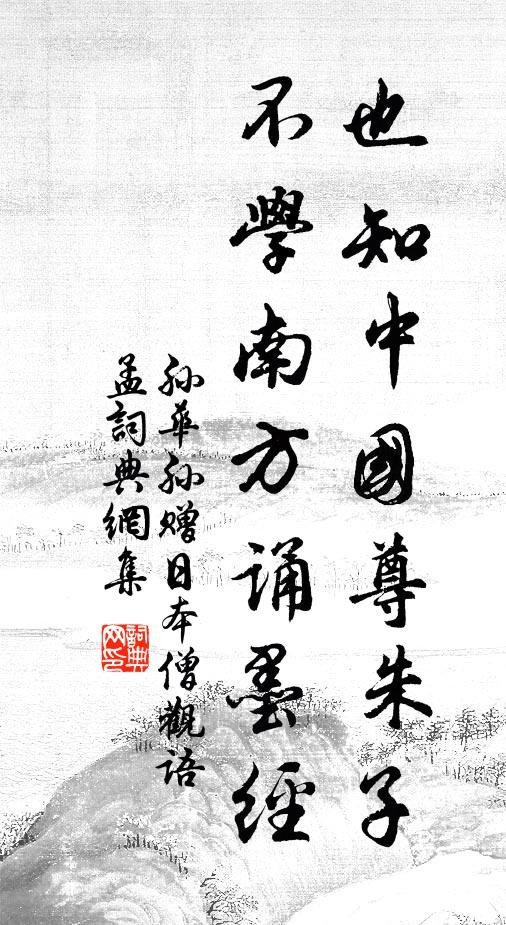 也知中國尊朱子
不學南方誦墨經
孫華孫贈日本僧觀語
孟詞典網集
詞典網印